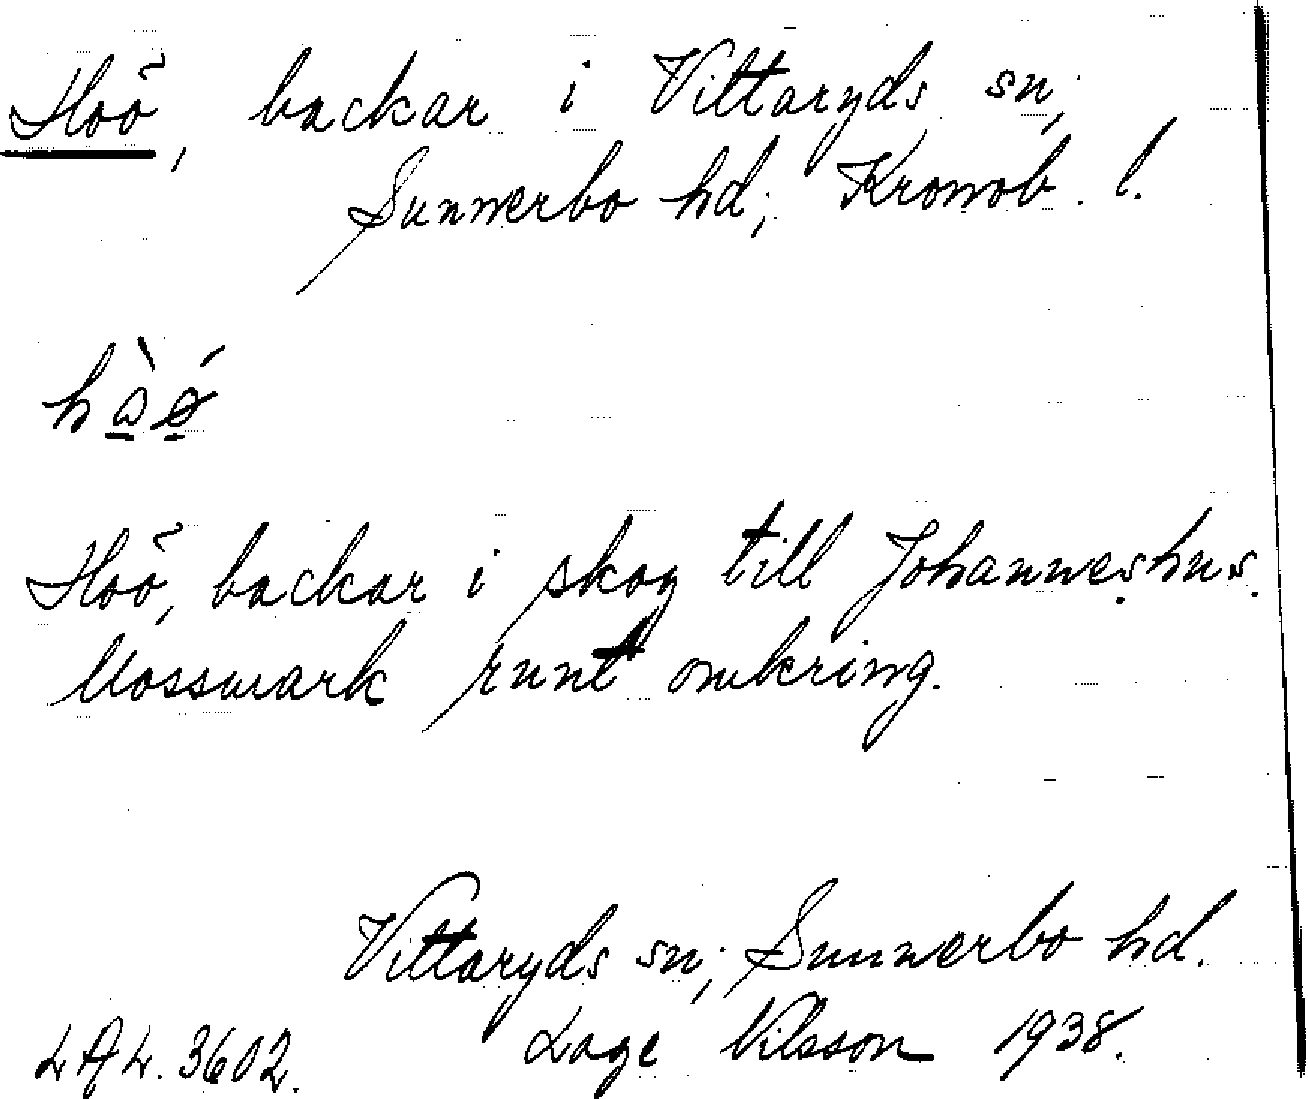 Hoö, backar i Vittaryds sn;
Sunnerbo hd; Kronob. l.
Hoö, backar i skog till Johanneshus.
Mossmark runt omkring.
Vittaryds sn; Sunnerbo hd.
LAL. 3602. Lage Nilsson 1938.